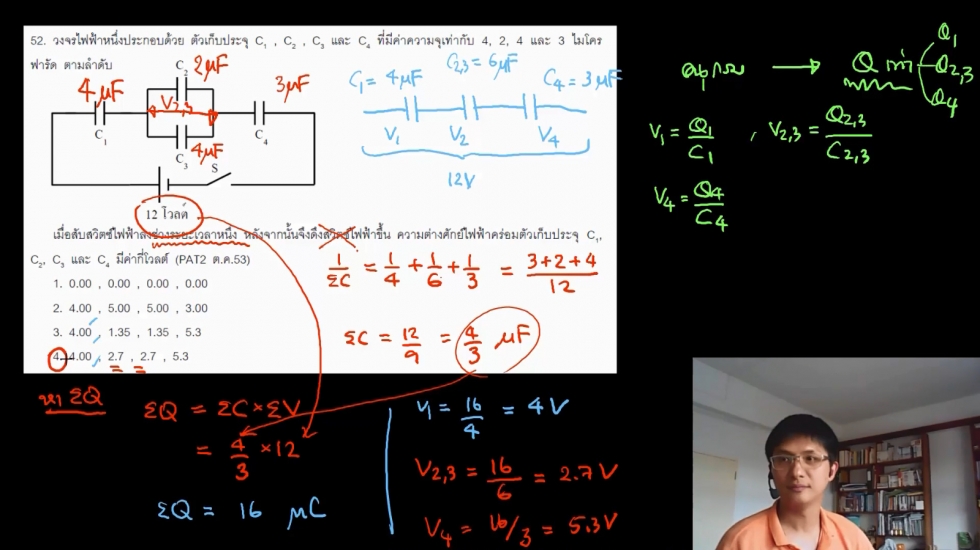 52. วงจรไฟฟ้าหนึ่งประกอบด้วย ตัวเก็บประจุ C₁ , C₂ , C₃ และ C₄ ที่มีค่าความจุเท่ากับ 4, 2, 4 และ 3 ไมโคร
ฟารัด ตามลำดับ
C₂ 2μF
4μF
V2,3
3μF
C₁
C₄
C₃ 4μF
S
12 โวลต์
C₁ = 4μF C2,3 = 6μF C₄ = 3μF
V₁ V₂ V₄
12V
อนุกรม → Q เท่า Q₁
Q2,3
Q₄
V₁ = Q₁/C₁ , V2,3 = Q2,3/C2,3
V₄ = Q₄/C₄
เมื่อสับสวิตซ์ไฟฟ้าลงช่วงระยะเวลาหนึ่ง หลังจากนั้นจึงดึงสวิตซ์ไฟฟ้าขึ้น ความต่างศักย์ไฟฟ้าคร่อมตัวเก็บประจุ C₁,
C₂, C₃ และ C₄ มีค่ากี่โวลต์ (PAT2 ต.ค.53)
1. 0.00 , 0.00 , 0.00 , 0.00
2. 4.00 , 5.00 , 5.00 , 3.00
3. 4.00 , 1.35 , 1.35 , 5.3
4. 4.00 , 2.7 , 2.7 , 5.3
1/ΣC = 1/4 + 1/6 + 1/3 = 3+2+4/12
ΣC = 12/9 = 4/3 μF
หา ΣQ
ΣQ = ΣC × ΣV
= 4/3 × 12
ΣQ = 16 μC
V₁ = 16/4 = 4 V
V2,3 = 16/6 = 2.7 V
V₄ = 16/3 = 5.3 V